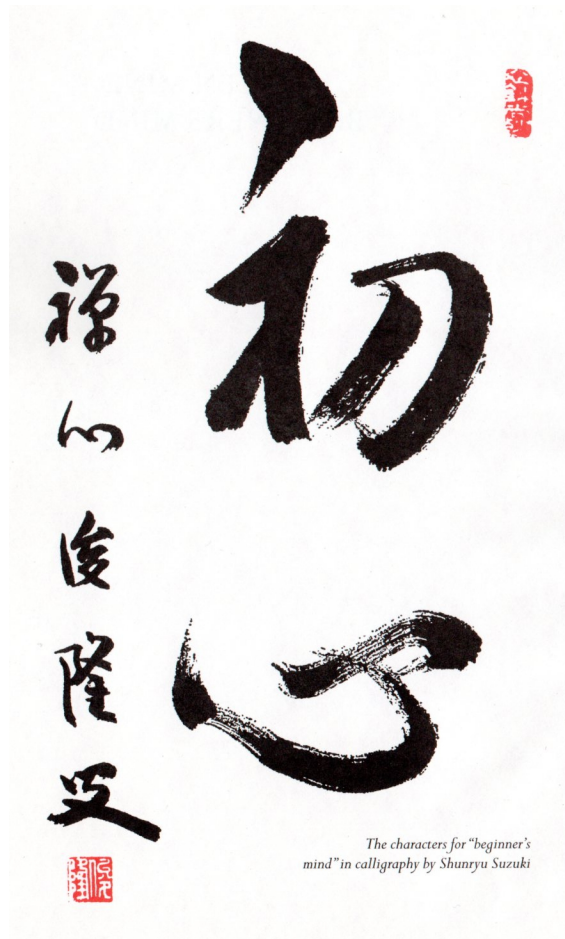 初心
禅心俊隆
俊隆
The characters for “beginner’s
mind” in calligraphy by Shunryu Suzuki